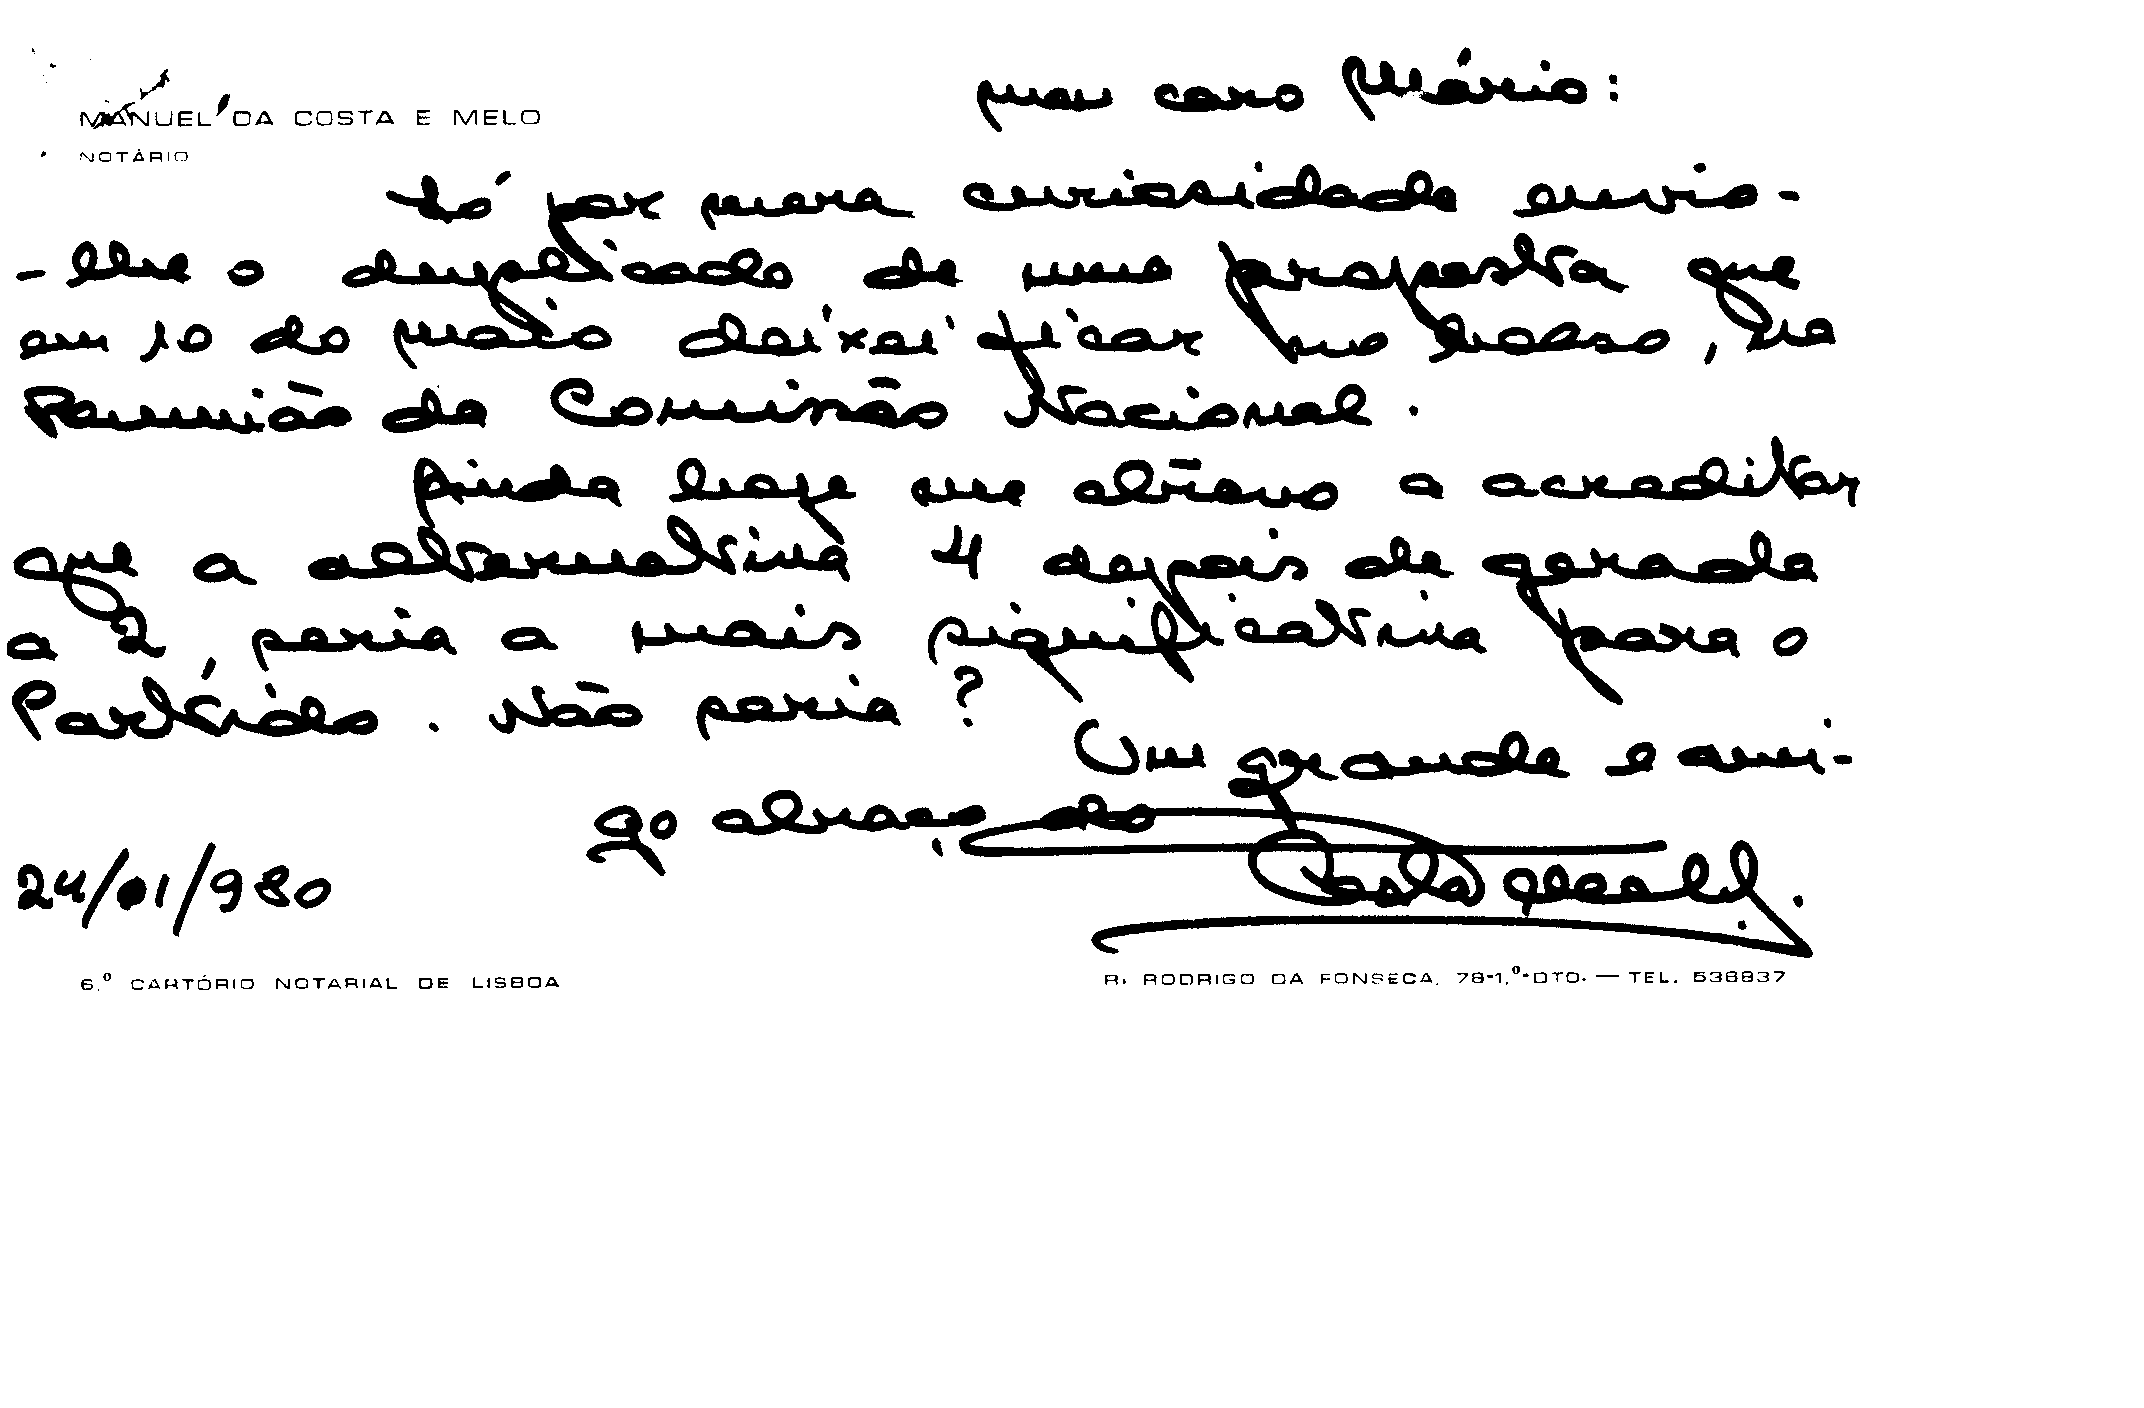 MANUEL DA COSTA E MELO
NOTÁRIO
meu caro Mário:
Só por mera curiosidade envio-
-lhe o duplicado de uma proposta que
em 10 de maio deixei ficar no bolso, na
Reunião da Comissão Nacional.
Ainda hoje me atrevo a acreditar
que a alternativa 4 depois de gerada
a 2, seria a mais significativa para o
Partido. Não seria?
Um grande e ami-
go abraço do
Costa Melo
24/01/980
6.º CARTÓRIO NOTARIAL DE LISBOA
R. RODRIGO DA FONSECA, 78-1.º-DTO. — TEL. 538837